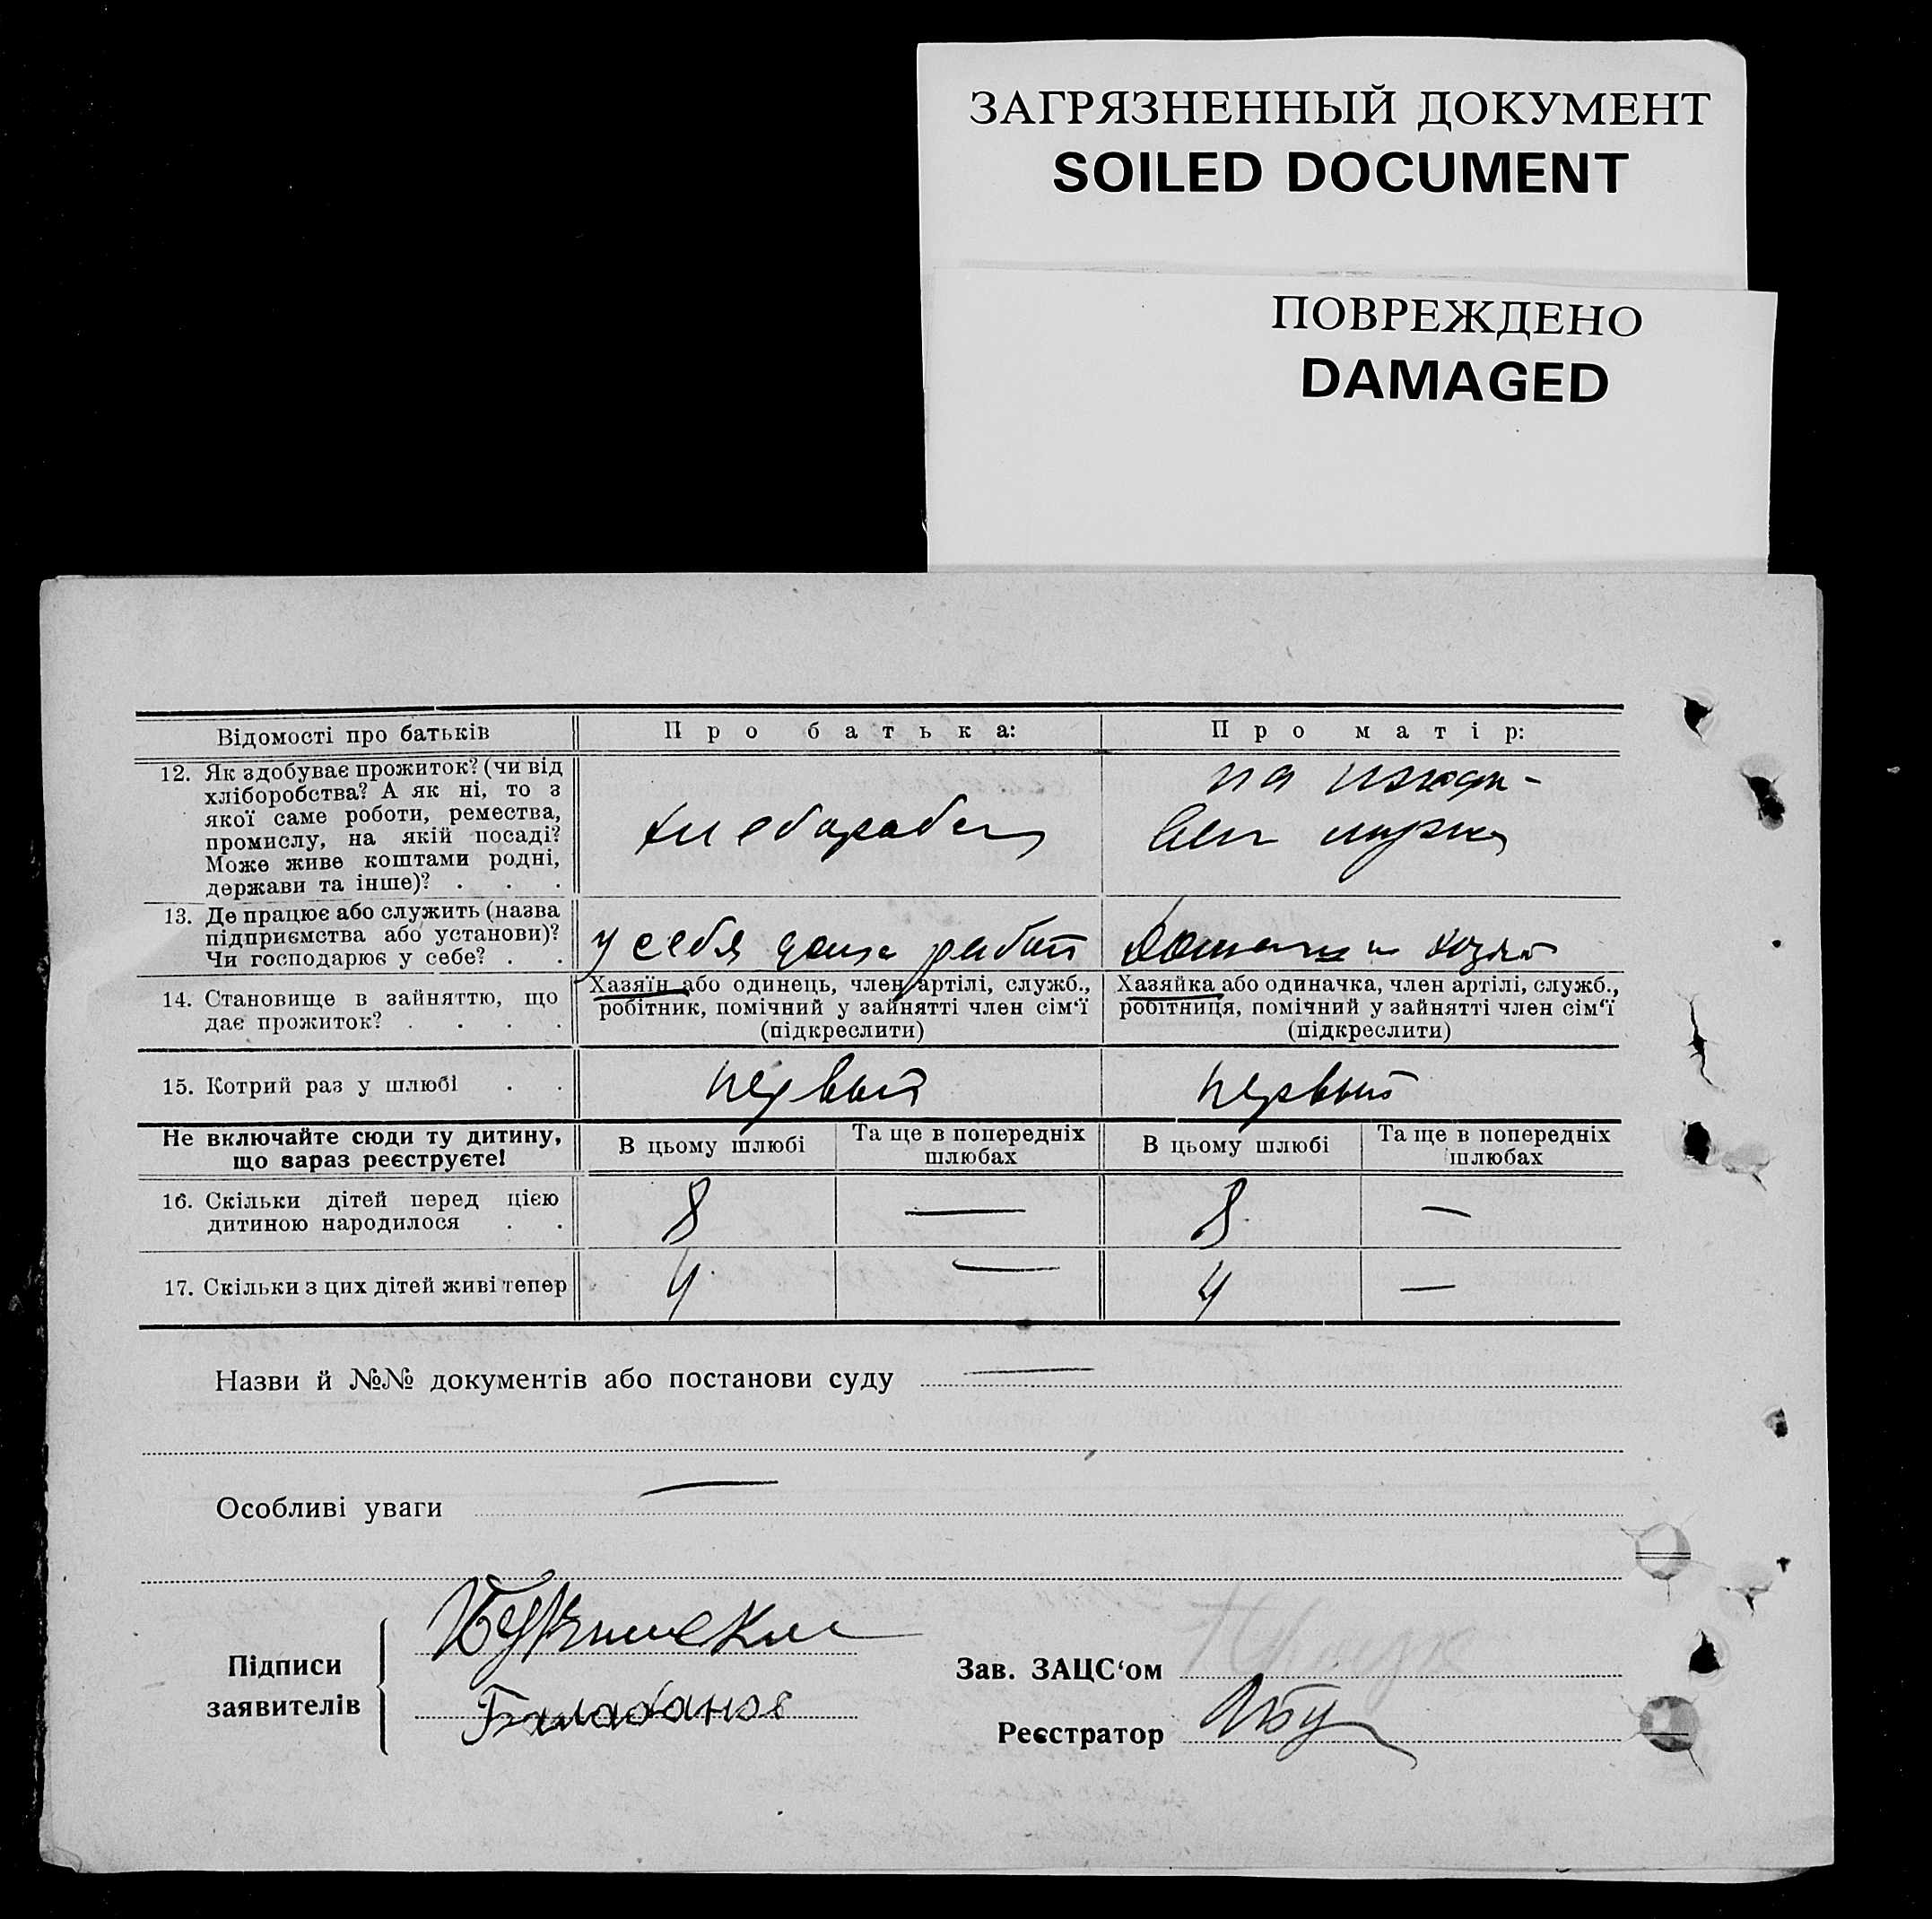 ЗАГРЯЗНЕННЫЙ ДОКУМЕНТ
SOILED DOCUMENT
ПОВРЕЖДЕНО
DAMAGED
Відомості про батьків
Про батька:
Про матір:
12. Як здобуває прожиток? (чи від
хліборобства? А як ні, то з
якої саме роботи, ремества,
промислу, на якій посаді?
Може живе коштами родні,
держави та інше)? . . .
на ижди-
вен мужа
13. Де працює або служить (назва
підприємства або установи)?
Чи господарює у себе? . .
у себя дома работ
14. Становище в зайняттю, що
дає прожиток? . . . .
Хазяїн або одинець, член артілі, служб.,
робітник, помічний у зайнятті член сім‘ї
(підкреслити)
Хазяйка або одиначка, член артілі, служб.,
робітниця, помічний у зайнятті член сім‘ї
(підкреслити)
15. Котрий раз у шлюбі . .
первый
первый
Не включайте сюди ту дитину,
що зараз реєструєте!
В цьому шлюбі
Та ще в попередніх
шлюбах
В цьому шлюбі
Та ще в попередніх
шлюбах
16. Скільки дітей перед цією
дитиною народилося . .
8
—
8
—
17. Скільки з цих дітей живі тепер
4
—
4
—
Назви й №№ документів або постанови суду —
Особливі уваги —
Підписи
заявителів
Зав. ЗАЦС‘ом
Реєстратор